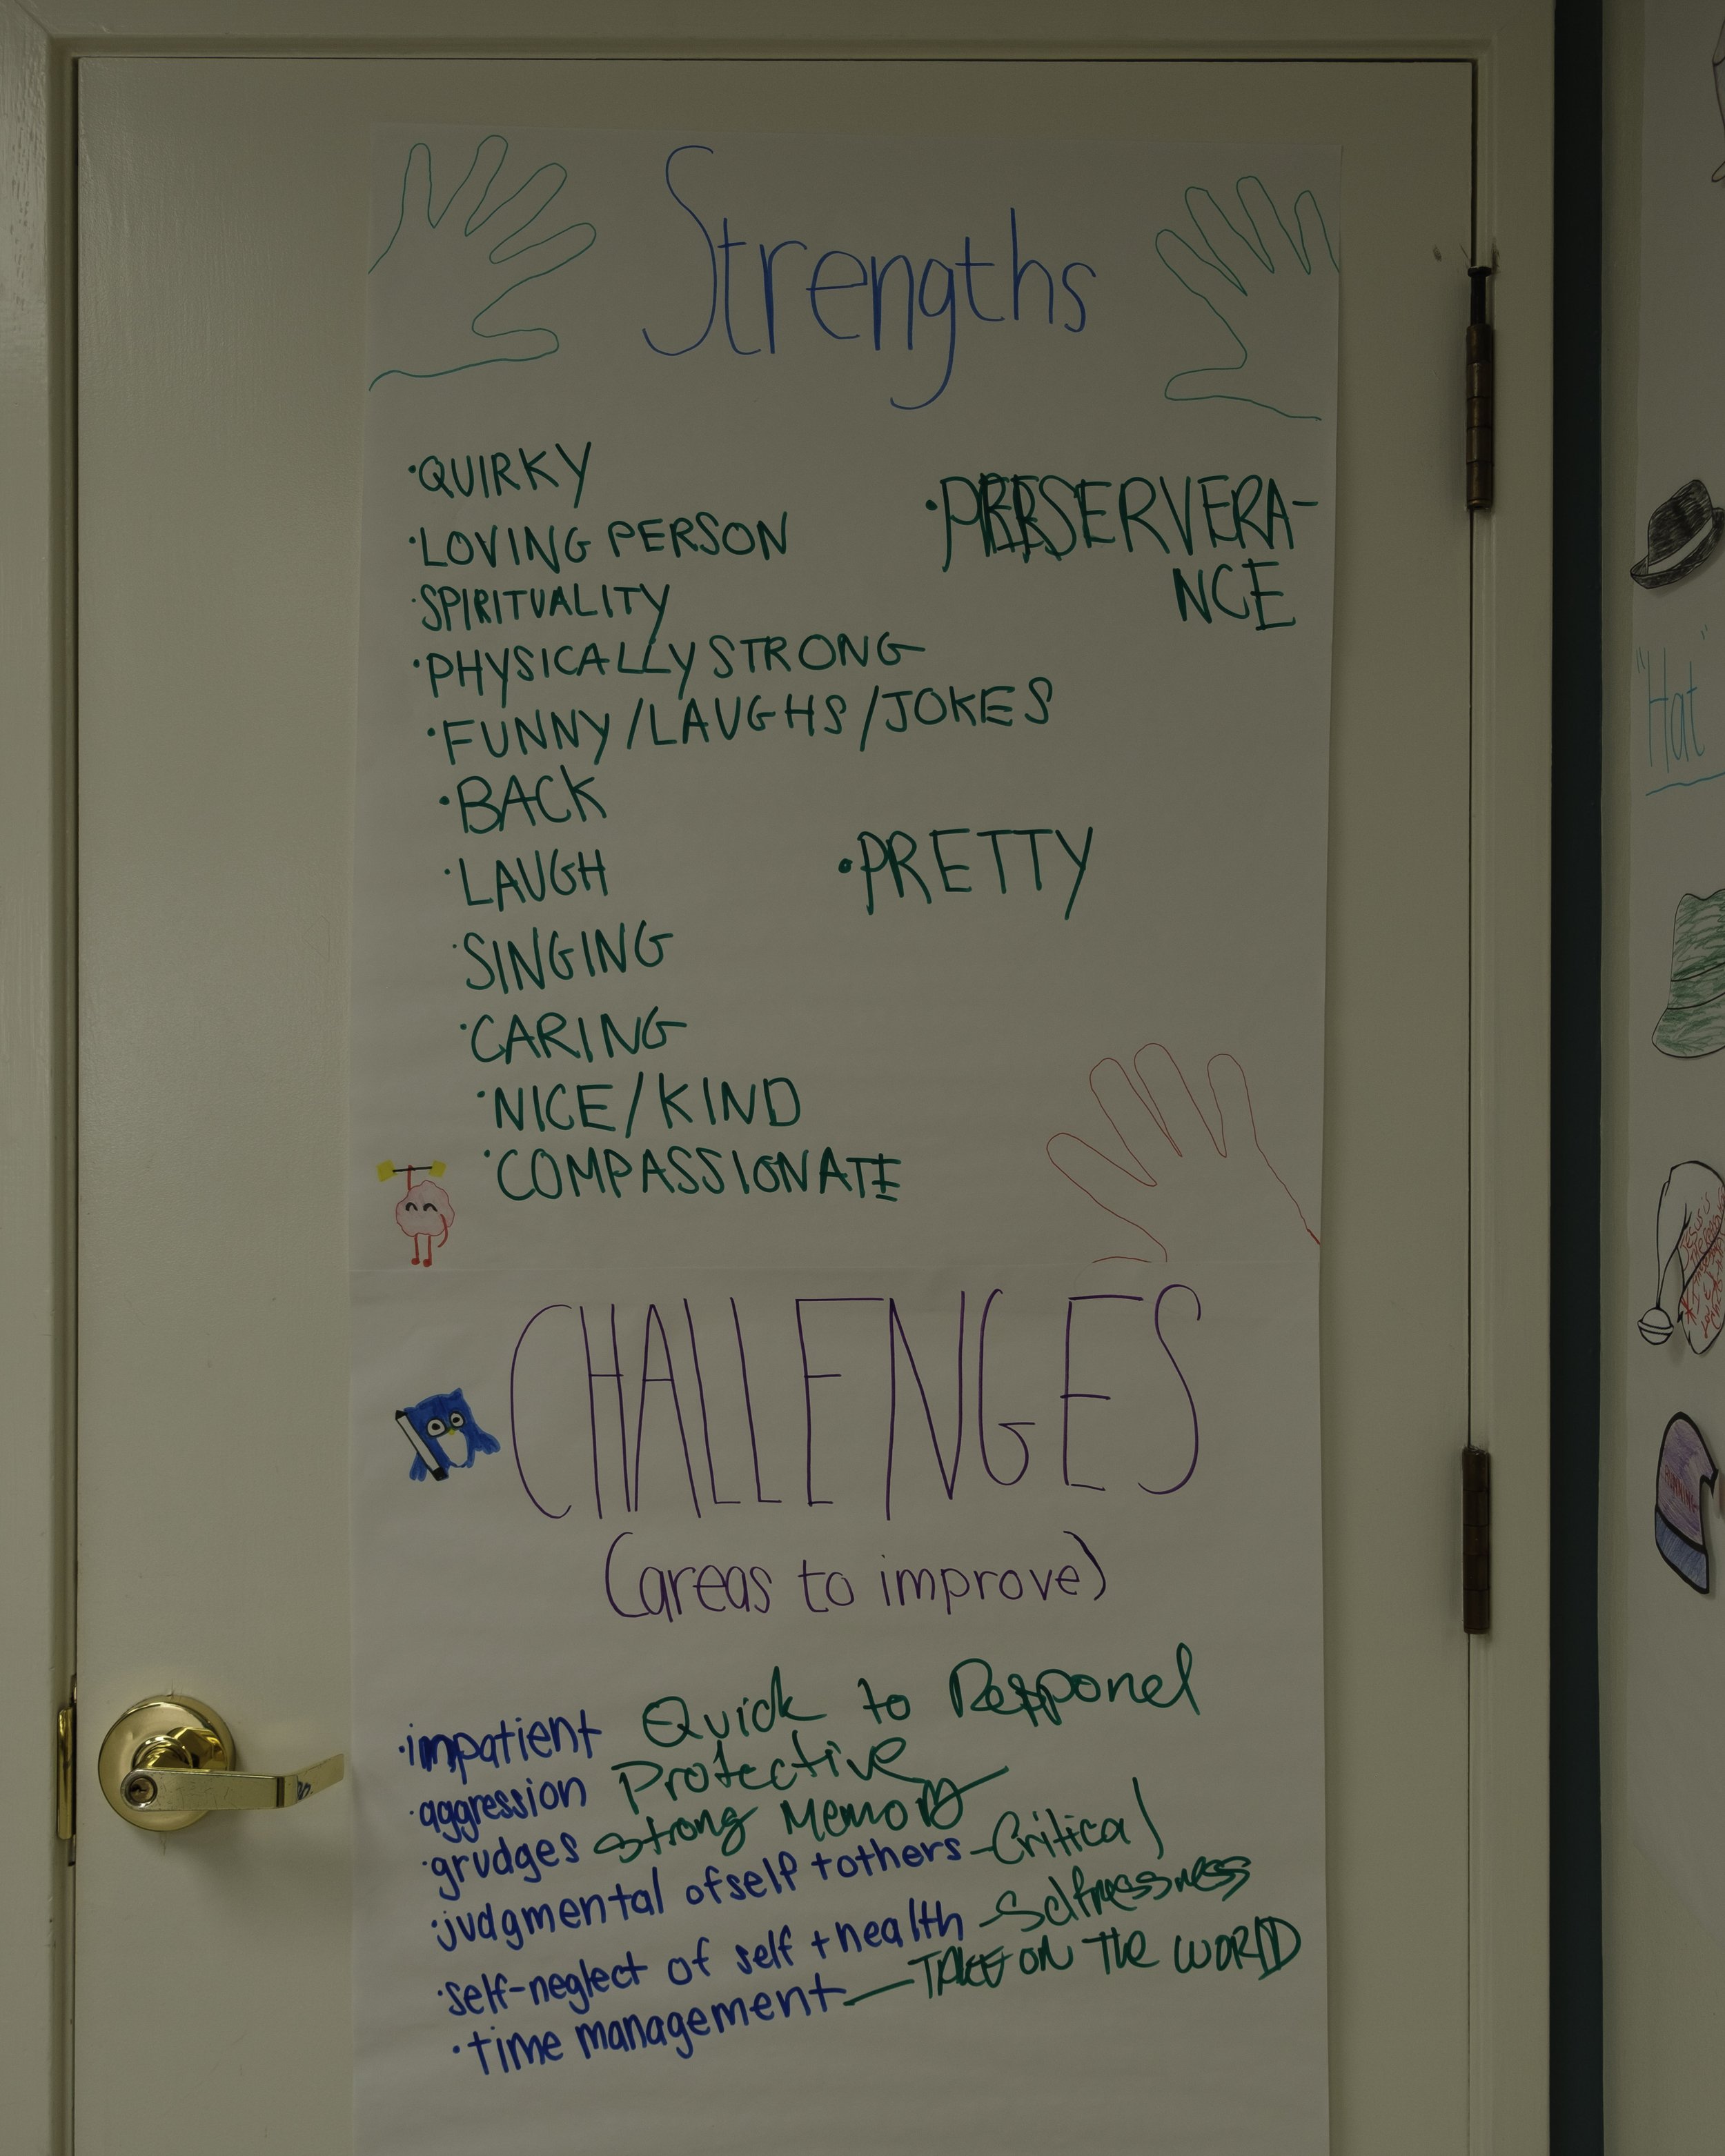 Strengths
·QUIRKY
·LOVING PERSON
·SPIRITUALITY
·PHYSICALLY STRONG
·FUNNY/LAUGHS/JOKES
·BACK
·LAUGH
·SINGING
·CARING
·NICE/KIND
·COMPASSIONATE
·PERSERVERA-
NCE
·PRETTY
CHALLENGES
(areas to improve)
·impatient Quick to Respond
·aggression Protective
·grudges strong Memory
·judgmental of self + others - Critical
·self-neglect of self + health - Selflessness
·time management — TAKE ON THE WORLD
"Hat"
RUNNING